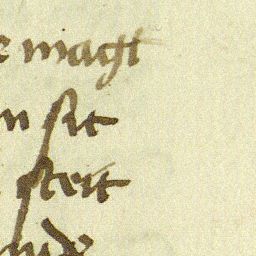 e magt
n sit
steit
nde